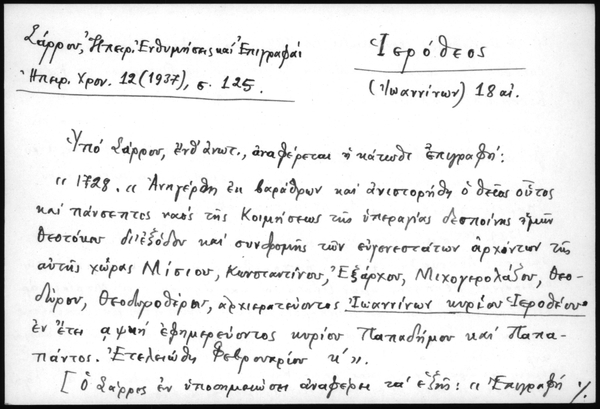 Σάρρου, Ἠπειρ. Ἐνθυμήσεις καὶ Ἐπιγραφαί
Ἠπειρ. Χρον. 12 (1937), σ. 125.
Ἱερόθεος
(Ἰωαννίνων) 18 αἰ.
Ὑπό Σάρρου, ἔνθ' ἀνωτ., ἀναφέρεται ἡ κάτωθι ἐπιγραφή:
« 1728. « Ἀνηγέρθη ἐκ βαράθρων καὶ ἀνιστορήθη ὁ θεῖος οὗτος
καὶ πάνσεπτος ναός τῆς Κοιμήσεως τῆς ὑπεραγίας δεσποίνης ἡμῶν
Θεοτόκου δι' ἐξόδου καὶ συνδρομῆς τῶν εὐγενεστάτων ἀρχόντων τῆς
αὐτῆς χώρας Μίσιου, Κωνσταντίνου, Ἐξάρχου, Μιχογερολάζου, Θεο-
δώρου, Θεοδωροθέρου, ἀρχιερατεύοντος Ἰωαννίνων κυρίου Ἱεροθέου
ἐν ἔτει ͵αψκή ἐφημερεύοντος κυρίου Παπαδήμου καὶ Παπα-
πάντος. Ἐτελειώθη Φεβρουαρίου κ' ».
[ ὁ Σάρρος ἐν ὑποσημειώσει ἀναφέρει τά ἑξῆς: « Ἐπιγραφή ./.